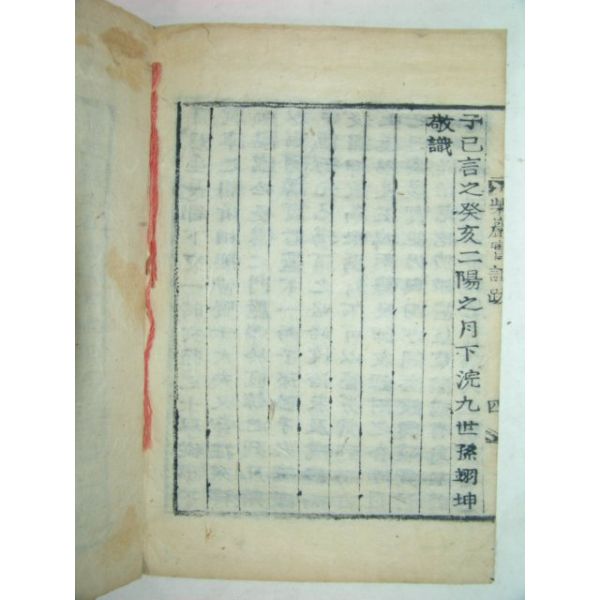 子已言之癸亥二陽之月下浣九世孫翊坤
敬識
四